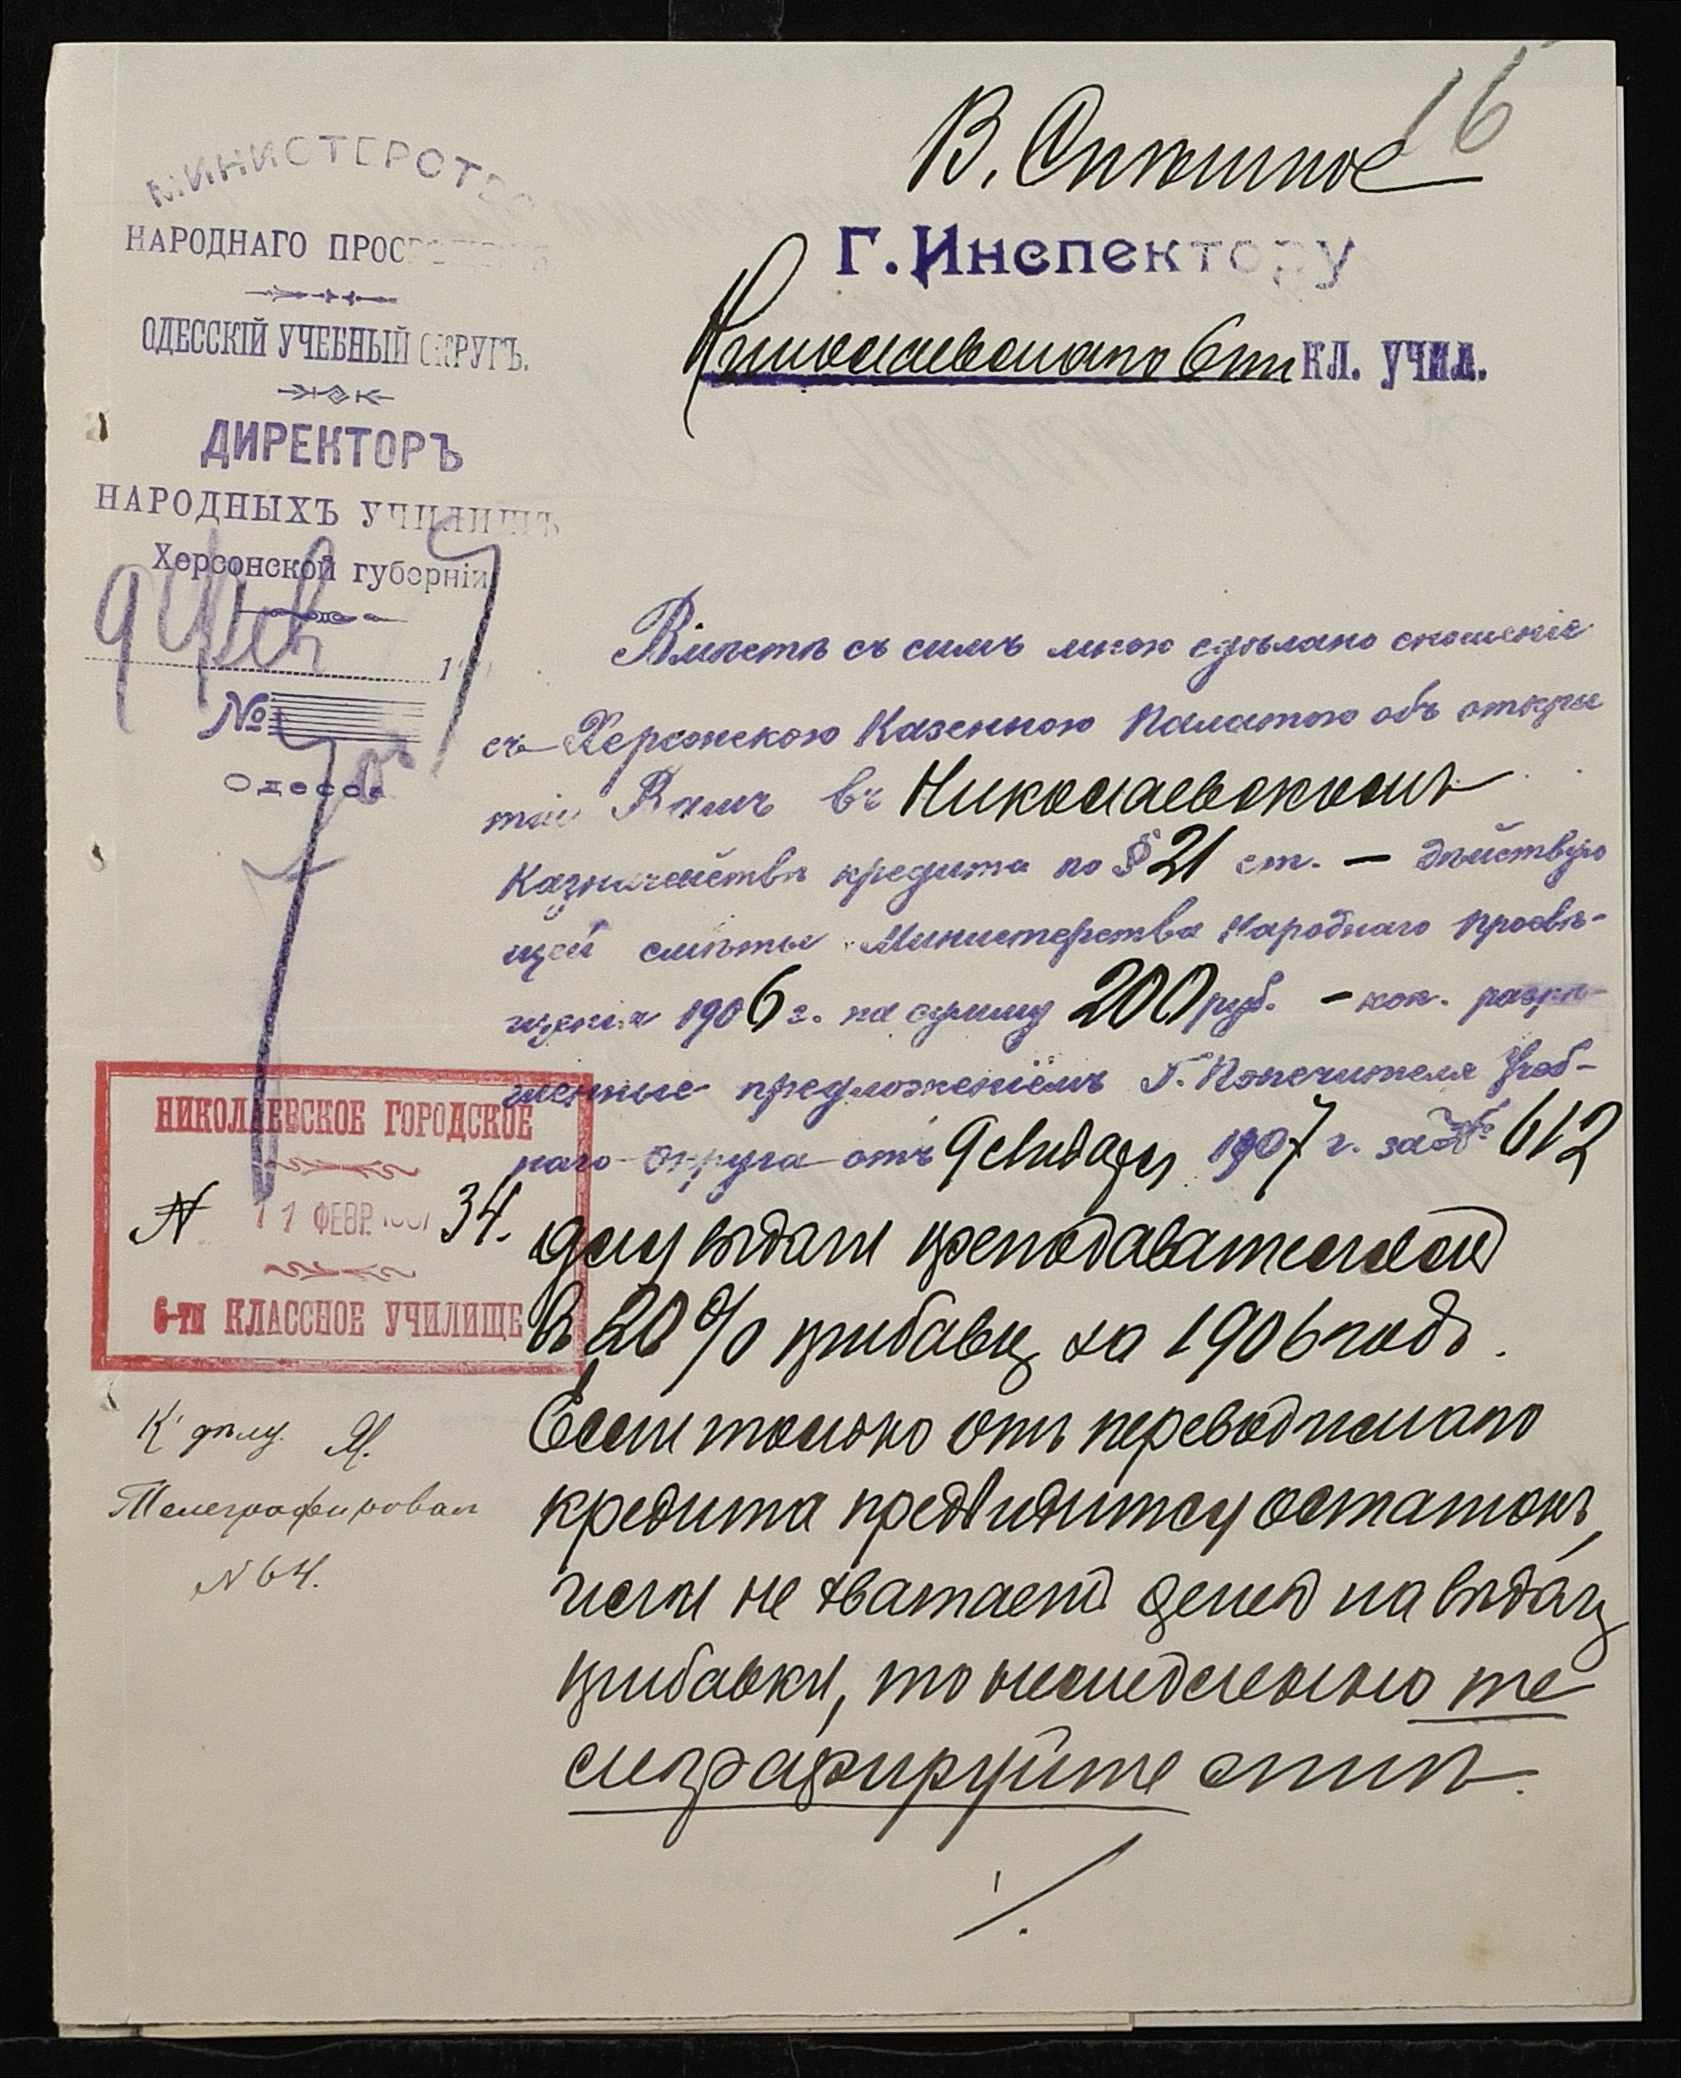 16
В. Спѣшное
МИНИСТЕРСТВО
НАРОДНАГО ПРОСВѢЩЕНІЯ
ОДЕССКІЙ УЧЕБНЫЙ ОКРУГЪ.
ДИРЕКТОРЪ
НАРОДНЫХЪ УЧИЛИЩЪ
Херсонской губерніи
9 Фев 7
1
№ 705
Одесса
Г. Инспектору
Николаевскаго 6ти КЛ. УЧИЛ.
Вмѣстѣ съ симъ мною сдѣлано сношеніе
съ Херсонскою Казенною Палатою объ откры
тіи Вамъ въ Николаевскомъ
Казначействѣ кредита по § 21 ст. — дѣйствую
щей смѣты Министерства Народнаго Просвѣ-
щенія 1906 г. на сумму 200 руб. — коп. разрѣ-
шенные предложеніемъ Г. Попечителя Учеб-
наго Округа отъ 9 Января 1907 г. за № 612
для выдачи преподавателямъ
въ 20% прибавку за 1906 годъ.
Если только отъ переводимаго
кредита предвидится остатокъ,
или не хватаетъ денегъ на выдачу
прибавки, то немедленно те
леграфируйте мнѣ.
НИКОЛАЕВСКОЕ ГОРОДСКОЕ
№ 11 ФЕВР. 1907 34.
6-ти КЛАССНОЕ УЧИЛИЩЕ
К дѣлу.
Телеграфировал
№ 64.
./.